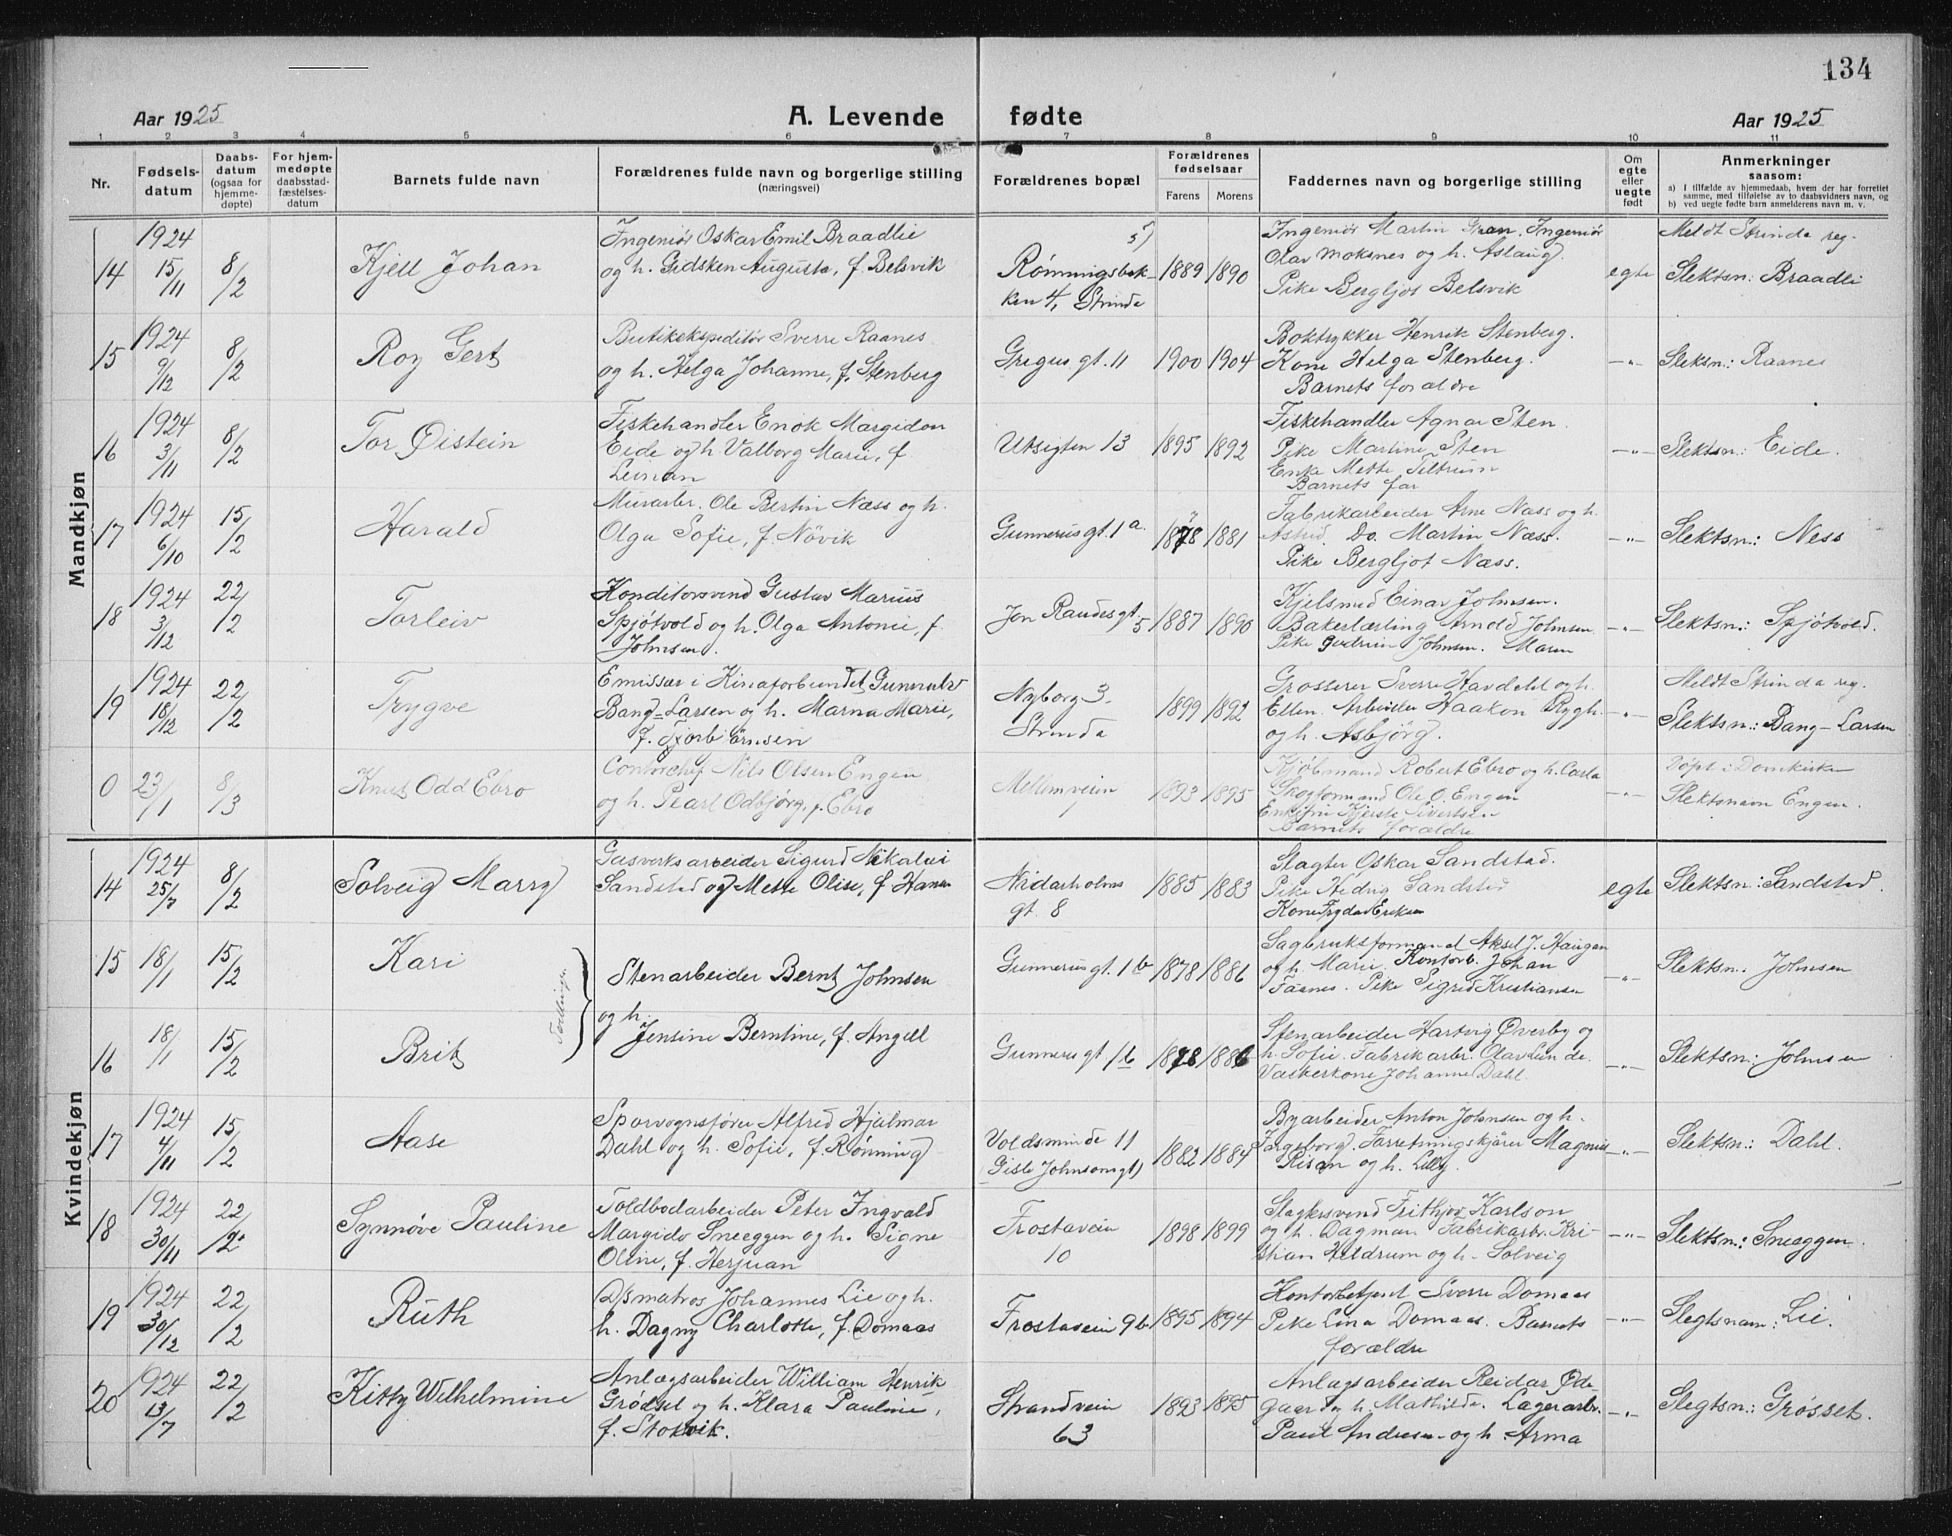 134
Aar 1925
A. Levende
fødte
Aar 1925
1 2 3 4 5 6 7 8 9 10 11
Nr.
Fødsels-
datum
Daabs-
datum
(ogsaa for
hjemme-
døpte)
For hjem-
medøpte
daabsstad-
fæstelses-
datum
Barnets fulde navn
Forældrenes fulde navn og borgerlige stilling
(næringsvei)
Forældrenes bopæl
Forældrenes
fødselsaar
Farens Morens
Faddernes navn og borgerlige stilling
Om
egte
eller
uegte
født
Anmerkninger
saasom:
a) I tilfælde av hjemmedaab, hvem der har forrettet
samme, med tilføielse av to daabsvidners navn, og
b) ved uegte fødte barn anmelderens navn m. v.
Mandkjøn
14
1924
15/11
8/2
Kjell Johan
Ingeniør Oskar Emil Braadlie
og h. Gidsken Augusta, f. Belsvik
5)
Rønningsbak-
ken 4, Strinda
1889 1890
Ingeniør Martin Gran. Ingeniør
Olav Moksnes og h. Aslaug.
Pike Bergljot Belsvik
egte
Meldt Strinda reg.
Slektsn: Braadli
15
1924
9/12
8/2
Roy Gert
Butikekspeditør Sverre Raanes
og h. Helga Johanne, f. Stenberg
Gregus gt. 11
1900 1904
Boktrykker Henrik Stenberg.
Kone Helga Stenberg.
Barnets forældre
-"-
Sleksn: Raanes
16
1924
3/11
8/2
Tor Øistein
Fiskehandler Enok Margidon
Eide og h. Valborg Marie, f.
Leinan
Utsigten 13
1895 1892
Fiskehandler Agnar Sten.
Pike Martine Sten
Enke Mette Tiltrum
Barnets far
-"-
Slektsn: Eide.
17
1924
6/10
15/2
Harald
Murarbr. Ole Bertin Næss og h.
Olga Sofie, f. Növik
Gunnerus gt. 1a.
1878 1881
Fabrikarbeider Arne Næss og h.
Astrid. Do. Martin Næss.
Pike Bergljot Næss.
-"-
Slektsn: Ness
18
1924
3/12
22/2
Torleiv
Konditorsvend Gustav Marius
Spjøtvold og h. Olga Antonie, f.
Johnsen.
Jon Raudes gt. 5
1887 1890
Kjelsmed Einar Johnsen.
Bakerlærling Arnold Johnsen
Pike Gudrun Johnsen. Maren
-"-
Slektsn: Spjøtvold.
19
1924
18/12
22/2
Trygve
Emissær i Kinaforbundet Gunnulv
Bang-Larsen og h. Marna Marie,
Nyborg 3.
Strinda
1899 1892
Grosserer Sverre Havdahl og h.
Ellen. Arbeider Haakon Rygh.
og h. Asbjörg.
-"-
Meldt Strinda reg.
Slektsn: Bang-Larsen
0
23/1
8/3
Knut Odd Ebro
Contorchef Nils Olsen Engen
og h. Pearl Odbjörg, f. Ebro
Mellemveien
1
1893 1895
Kjøbmand Robert Ebro og h. Carla
Skogformand Ole O. Engen
Enkefru Kjerste Sivertsen
Barnets forældre
-"-
Døpt i Domkirken
Slektsnavn Engen.
Kvindekjøn
14
1924
25/7
8/2
Solveig Marry
Gasverksarbeider Sigurd Nikolai
Sandstad og Mette Olise, f. Hansen
Nidarholms
gt. 8
1885 1883
Slagter Oskar Sandstad.
Pike Hedvig Sandstad
Kone Fryda Eriksen
egte
Slektsn: Sandstad.
15
18/1
15/2
Kari
Tvillinger
Stenarbeider Bernt Johnsen
og h.
Gunnerus gt. 1b
1878 1886
Sagbruksformand Aksel J. Haugan
og h. Marie. Kontorb. Johan
Faanes. Pike Sigrid Kristiansen
-"-
Slektsn. Johnsen
16
18/1
15/2
Brit
Jensine Berntine, f. Angell
Gunnerus gt 1b
1878 1886
Stenarbeider Hartvig Øverby og
h. Sofie. Fabrikarbr. Olav Lunde.
Vaskerkone Johanne Dahl.
-"-
Slektsn: Johnsen
17
1924
4/11
15/2
Aase
Sporvognsfører Alfred Hjalmar
Dahl og h. Sofie, f. Rønning
Voldsminde 11
(Gisle Johnsons gt)
1882 1884
Byarbeider Anton Johnsen og h.
Ingeborg. Forretningskjører Magnus
Risan og h. Lilly.
-"-
Slektsn: Dahl.
18
1924
30/11
22/2
Synnøve Pauline
Toldbodarbeider Peter Ingvald
Margido Sneeggen og h. Signe
Oline, f. Herjuan
Frostaveien
10
1898 1899
Slagtersvend Frithjov Karlson
og h. Dagmar. Fabrikarbr. Kri-
stian Heldrum og h. Solveig
-"-
Slektsn: Sneeggen.
19
1924
30/12
22/2
Ruth
D/s matros Johannes Lie og h.
h. Dagny Charlotte, f. Domaas
Frostaveien 9b
1895 1894
Kontorbetjent Sverre Domaas
Pike Lina Domaas. Barnets
forældre
-"-
Slegtsnam: Lie.
20
1924
13/7
22/2
Kitty Wilhelmine
Anlægsarbeider William Henrik
Grødset og h. Klara Pauline,
f. Stokvik.
Strandveien
63
1893 1895
Anlagsarbeider Reidar Øde-
gaard og h. Mathilde. Lagerarbr.
Paul Andresen og h. Arma
-"-
Slegtsn: Grøsset.